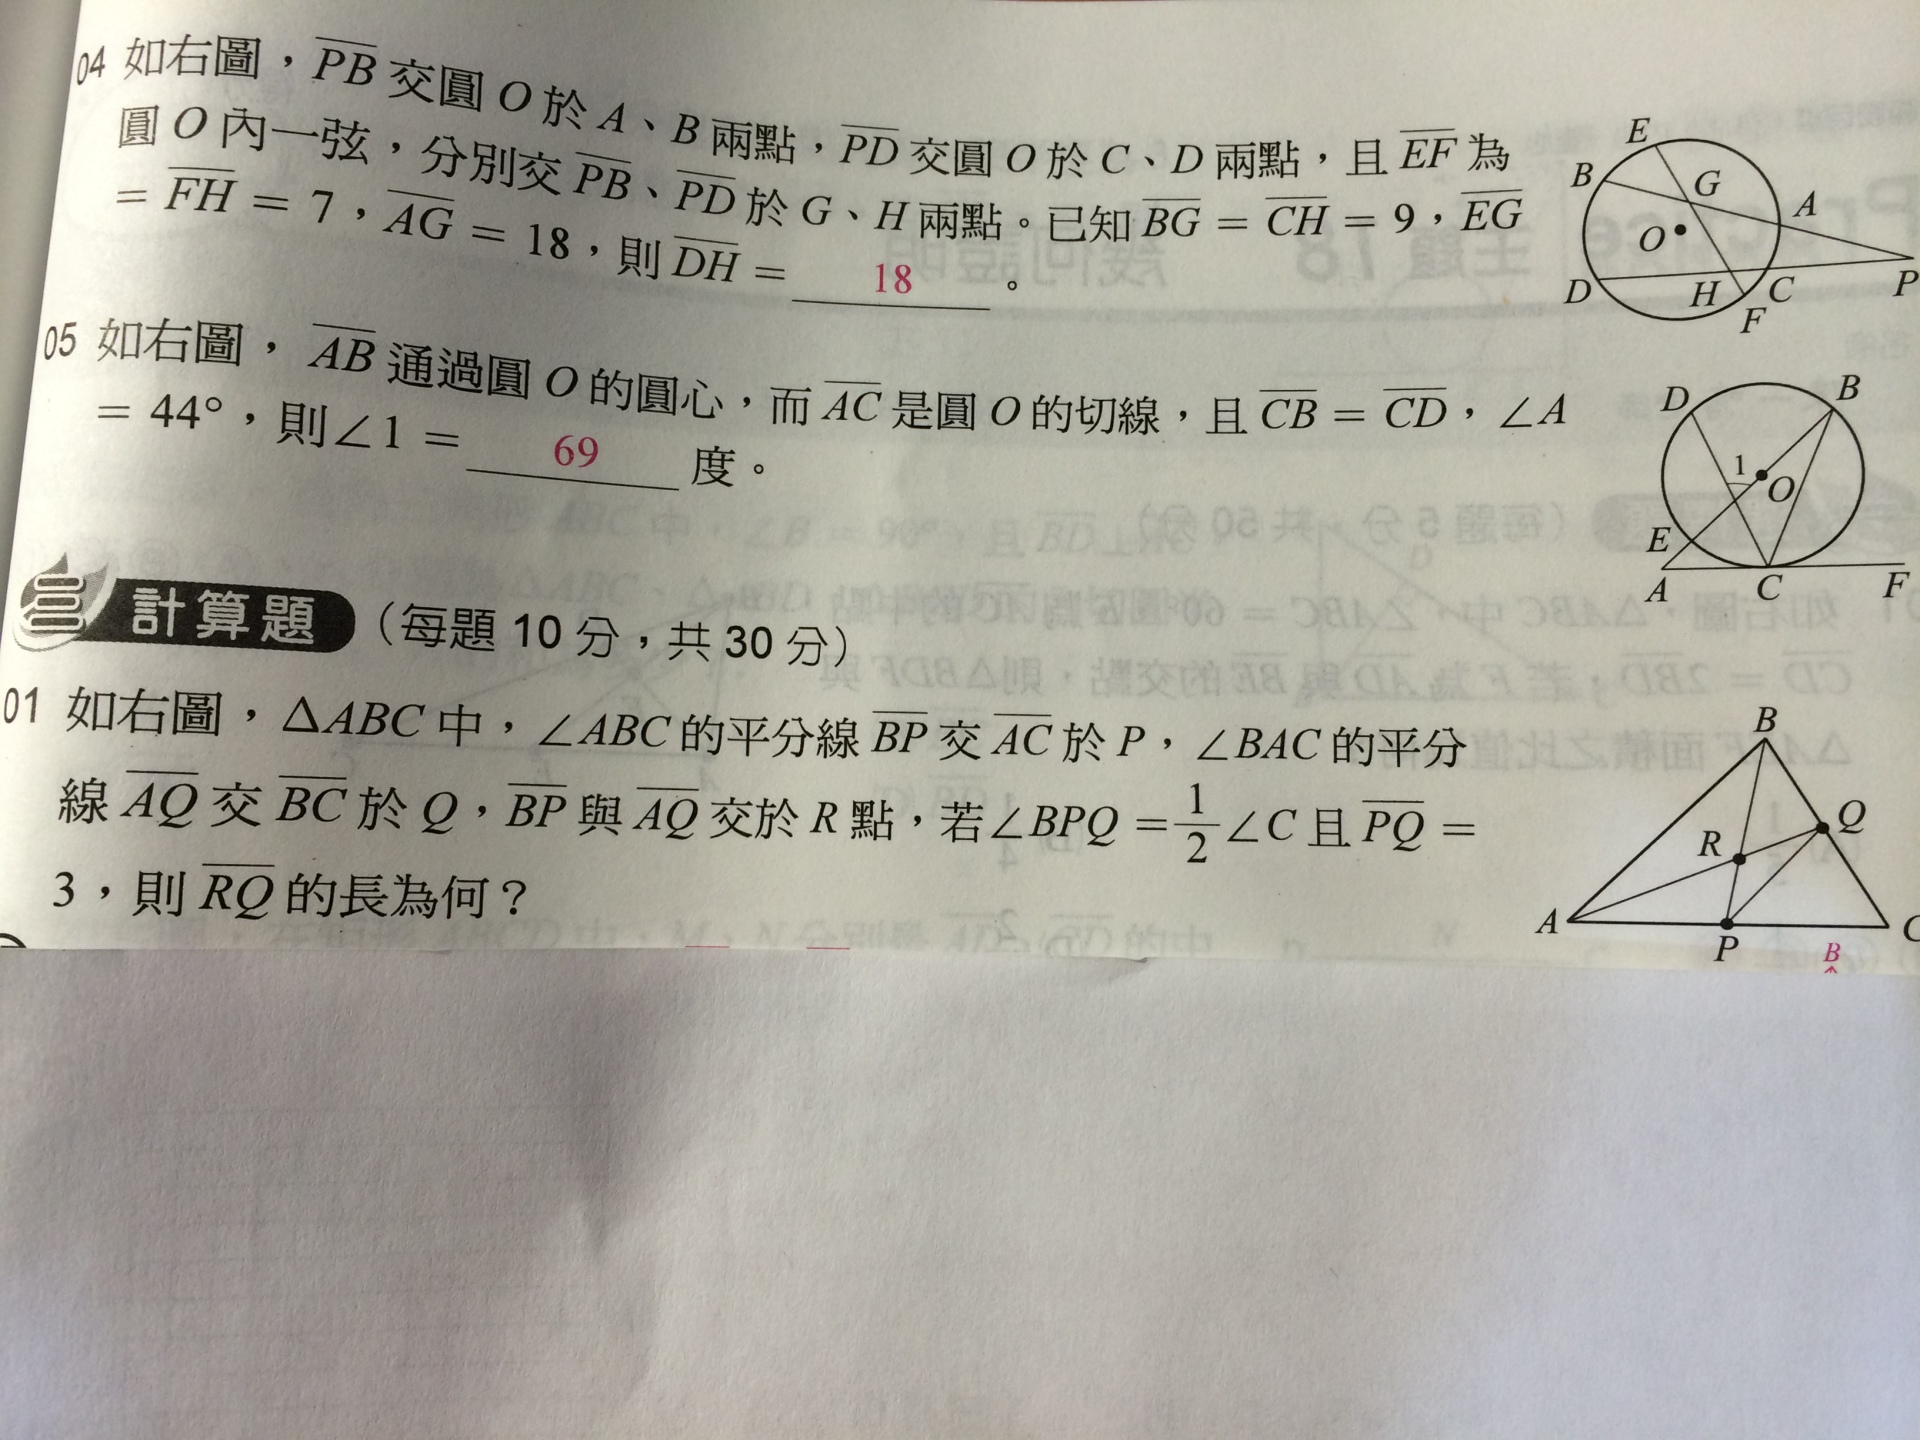 04 如右圖，PB 交圓 O 於 A、B 兩點，PD 交圓 O 於 C、D 兩點，且 EF 為
圓 O 內一弦，分別交 PB、PD 於 G、H 兩點。已知 BG = CH = 9，EG
= FH = 7，AG = 18，則 DH = 18 。
E
B
G
A
O
D
H
C
P
F
05 如右圖，AB 通過圓 O 的圓心，而 AC 是圓 O 的切線，且 CB = CD，∠A
= 44°，則∠1 = 69 度。
D
B
1
O
E
A
C
F
三 計算題（每題 10 分，共 30 分）
01 如右圖，△ABC 中，∠ABC 的平分線 BP 交 AC 於 P，∠BAC 的平分
線 AQ 交 BC 於 Q，BP 與 AQ 交於 R 點，若∠BPQ = 1/2 ∠C 且 PQ =
3，則 RQ 的長為何？
B
Q
R
A
P
C
B